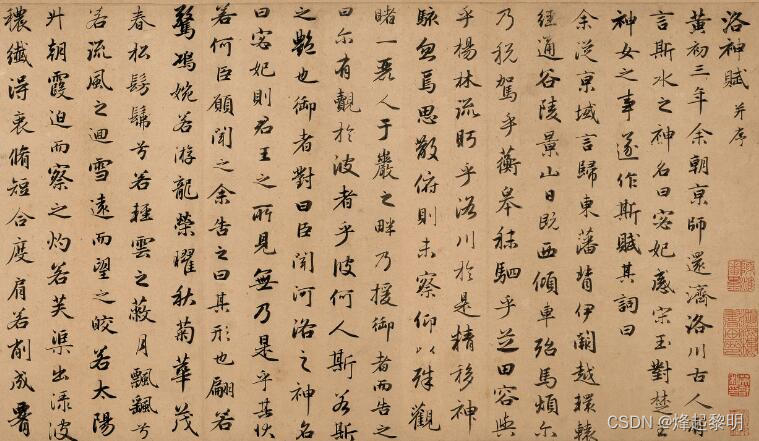 洛神賦 并序
黃初三年余朝京師還濟洛川古人有
言斯水之神名曰宓妃感宋玉對楚王
神女之事遂作斯賦其詞曰
余從京域言歸東藩背伊闕越轘轅
經通谷陵景山日既西傾車殆馬煩尔
乃稅駕乎蘅皋秣駟乎芝田容與
乎楊林流眄乎洛川於是精移神
駭忽焉思散俯則未察仰以殊觀
睹一麗人于巖之畔乃援御者而告之
曰尔有覿於彼者乎彼何人斯若斯
之艷也御者對曰臣聞河洛之神名
曰宓妃則君王之所見無乃是乎其狀
若何臣願聞之余告之曰其形也翩若
驚鴻婉若游龍榮曜秋菊華茂
春松髣髴兮若輕雲之蔽月飄飄兮
若流風之迴雪遠而望之皎若太陽
升朝霞迫而察之灼若芙渠出淥波
穠纖得衷脩短合度肩若削成
CSDN @烽起黎明